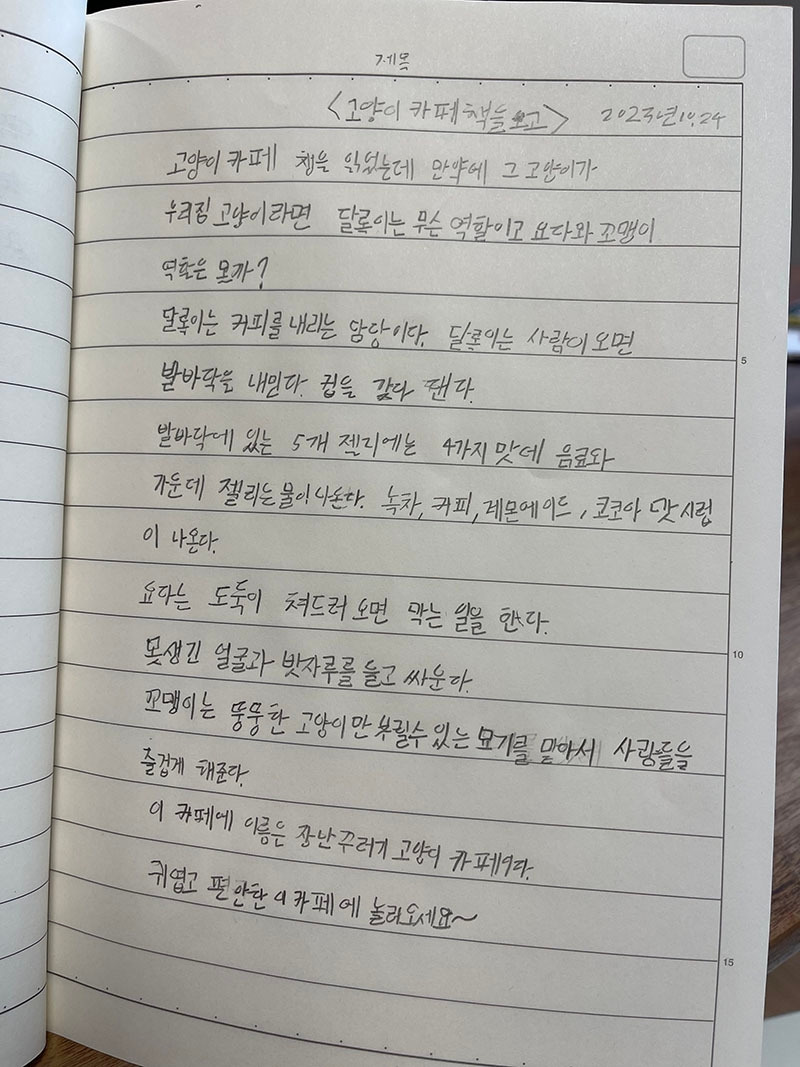 제목
<고양이 카페 책을 보고> 2023년10.24
고양이 카페 책을 읽었는데 만약에 그 고양이가
우리집 고양이라면 달록이는 무슨 역할이고 요다와 꼬맹이
역할은 뭘까?
달록이는 커피를 내리는 담당이다. 달록이는 사람이 오면
발바닥을 내민다. 컵을 갖다 땐다.
발바닥에 있는 5개 젤리에는 4가지 맛데 음료와
가운데 젤리는 물이 나온다. 녹차, 커피, 레몬에이드, 코코아 맛 시럽
이 나온다.
요다는 도둑이 쳐드러 오면 막는 일을 한다.
못생긴 얼굴과 밧자루를 들고 싸운다.
꼬맹이는 뚱뚱한 고양이만 부릴수 있는 묘기를 맡아서 사람들을
즐겁게 해준다.
이 카페에 이름은 장난꾸러기 고양이 카페이다.
귀엽고 편안한 이 카페에 놀러오세요~
5
10
15